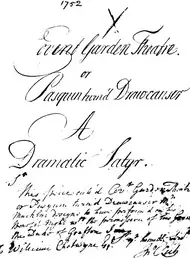 1752
Covent Garden Theatre.
or
Pasquin turn'd Drawcansir
A
Dramatic Satyr.
Sr
This piece call'd Cov.t Garden Theatre
or Pasquin turn'd Drawcansir Mr
Macklin designs to have perform'd at his
Benefit Night with the permission of
the Duke of Grafton